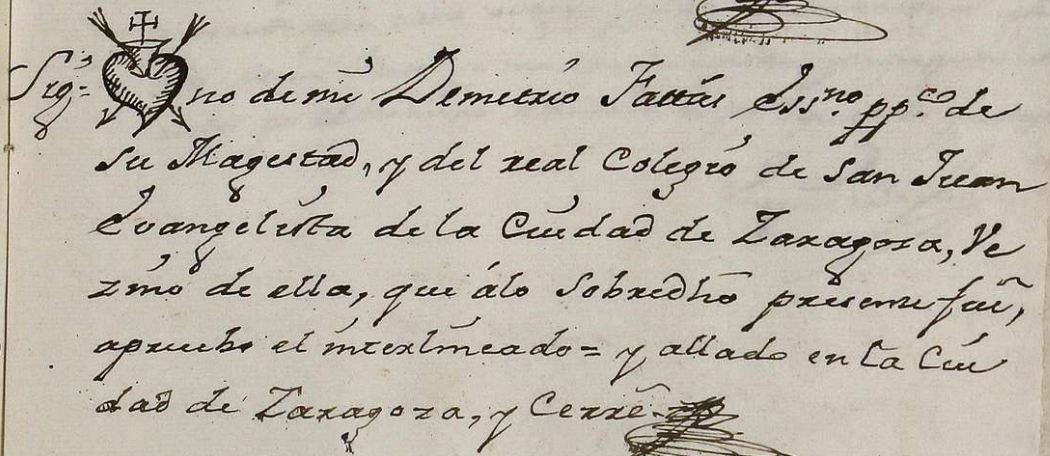 Sig= no de mi Demetrio Fattás Essno. ppco. de
su Magestad, y del real Colegio de San Juan
Evangelista de la Ciudad de Zaragoza, Ve
zino de ella, que álo sobredho presente fui,
apruebo el interlineado= y allado en la Ciu
dad de Zaragoza, y Cerré